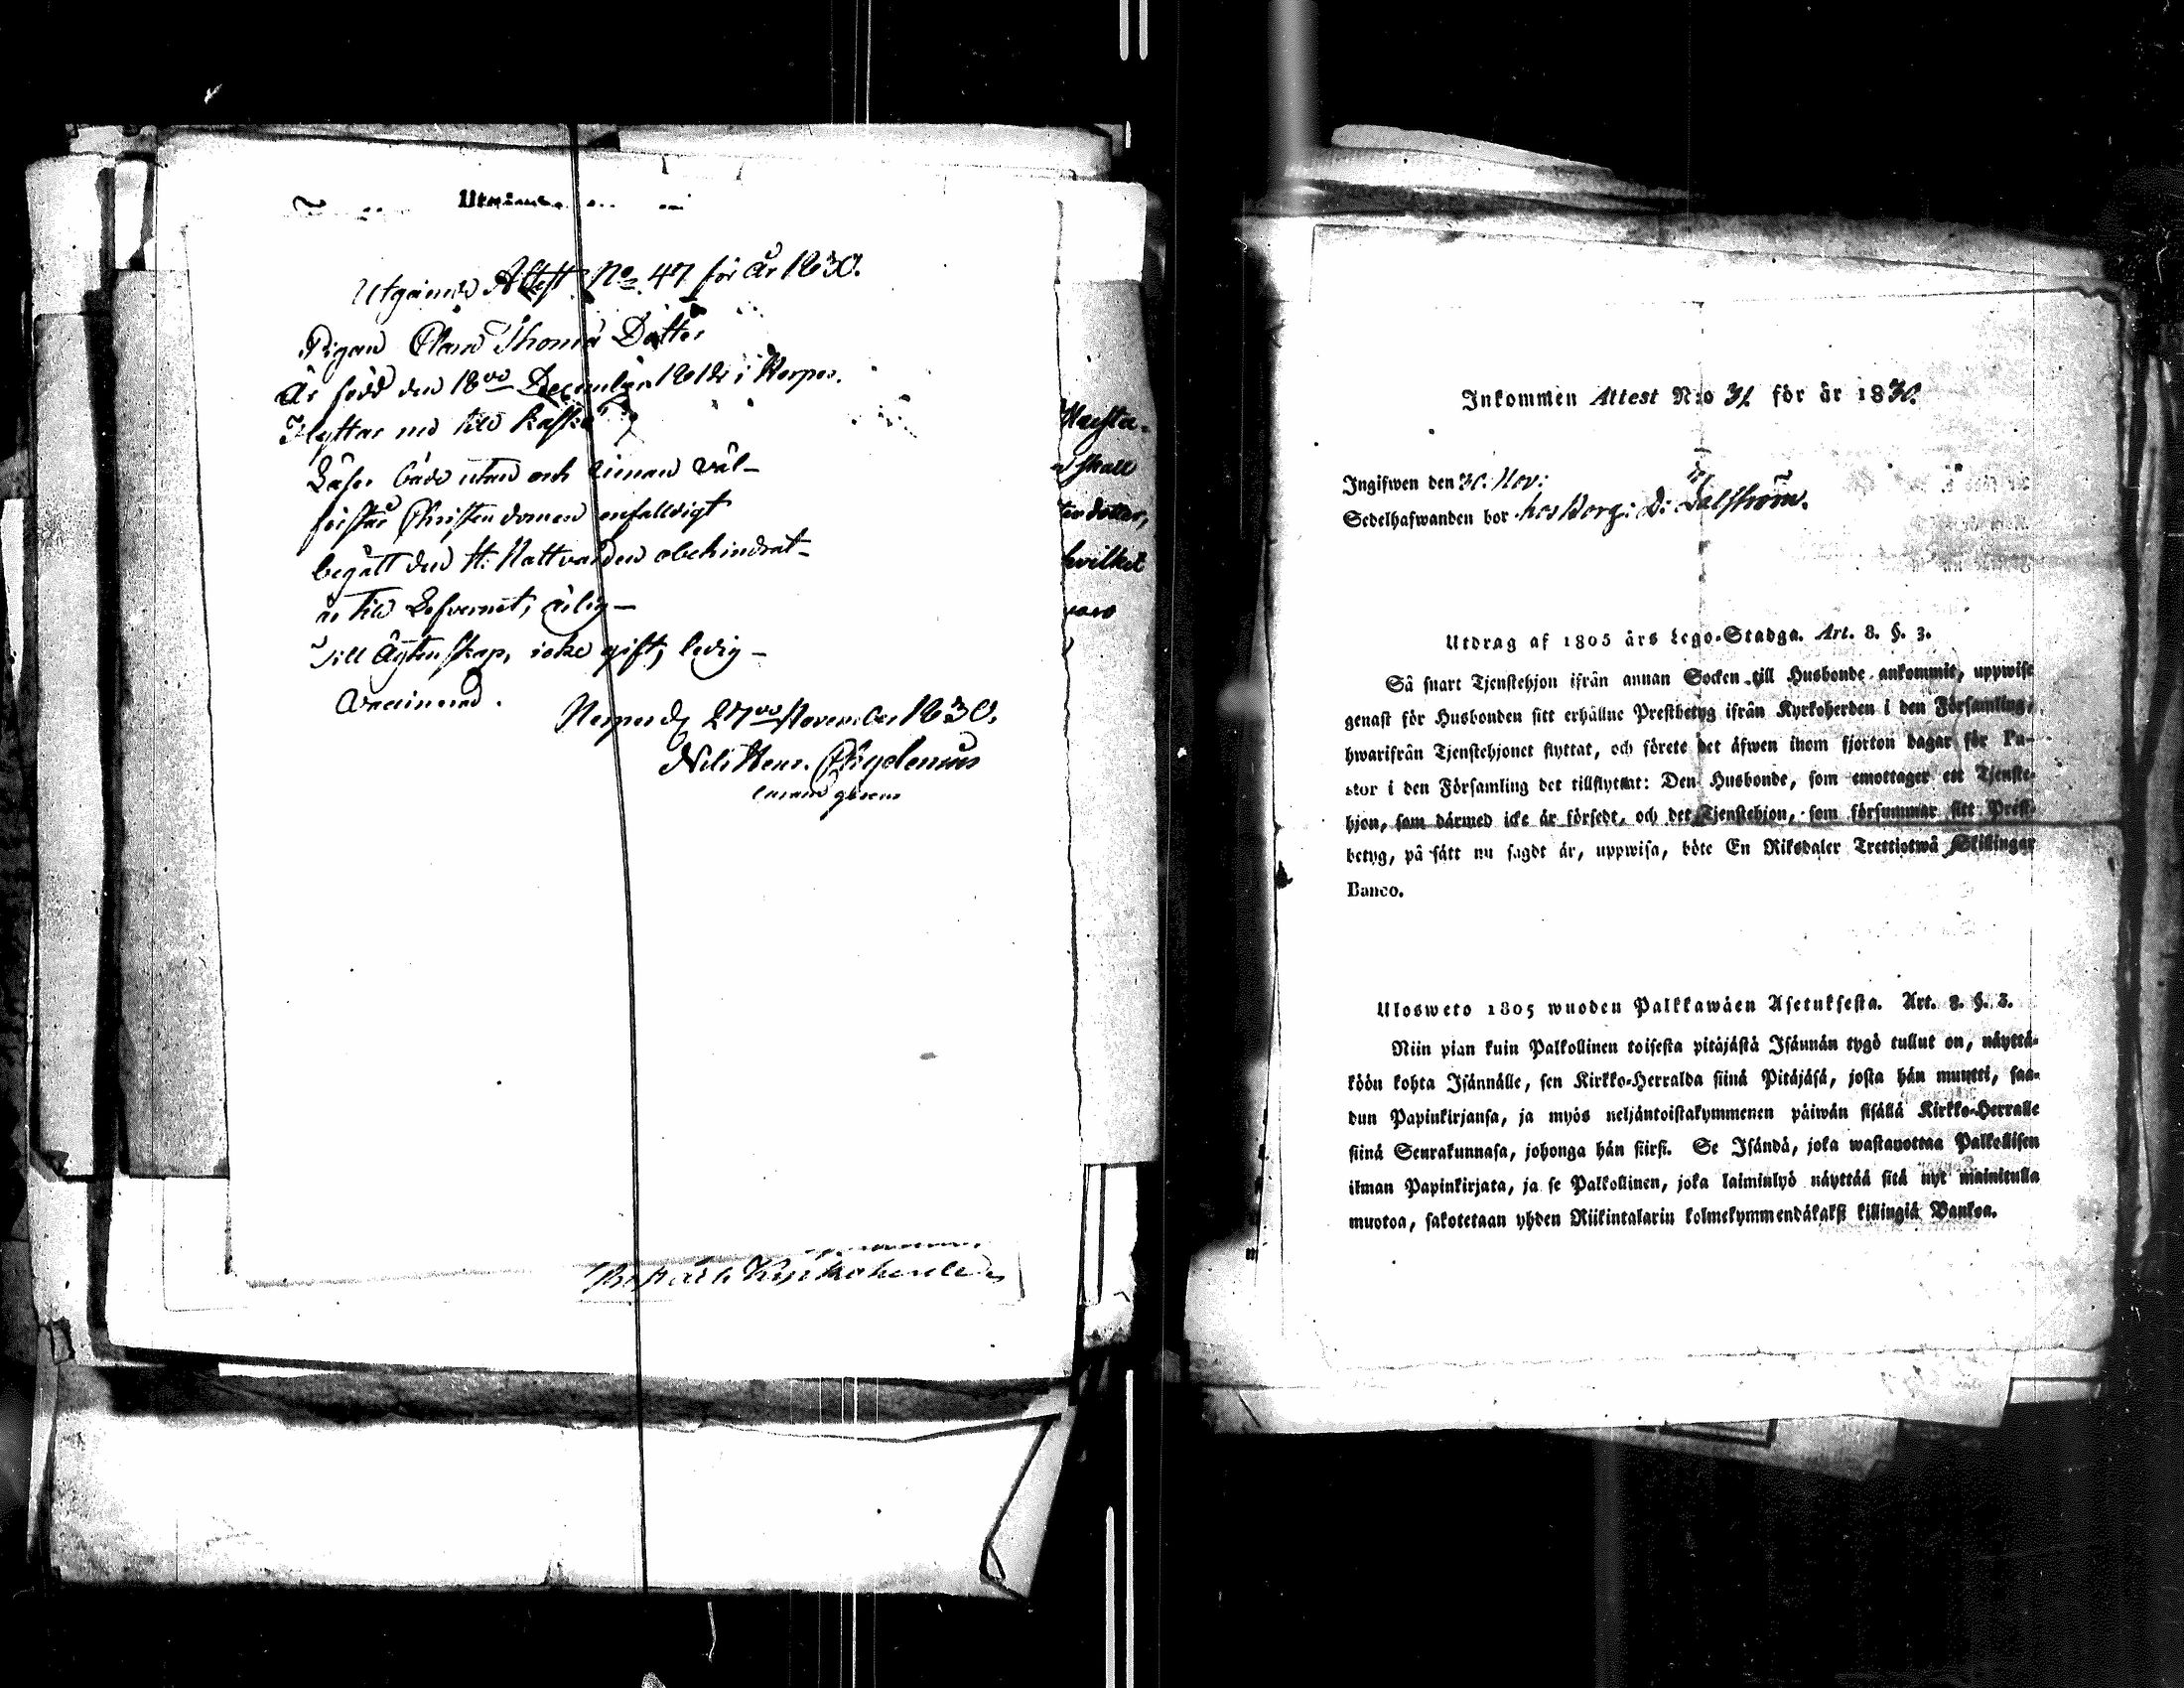 Utgående Attest No 47 för år 1830.
Pigan Thoma Dotter
Är född den 18de December 1812 i Nerpes.
Flyttar nu till Kaskö
Läser både utan och innan väl
förstår Christendomen enfalldigt
begått den H. Nattvarden obehindrat
är till Lefvernet, ärlig
Till Ägtenskap, icke gift, ledig
Vaccinerad.
Nerpes d. 27de November 1830.
Nils Henr. Chydenius
skall
dotter,
hvilket
Inkommen Attest N:o 31 för år 1830.
Ingifwen den 30. Nov:
Sedelhafwanden bor hos Borg: D: Dalström.
Utdrag af 1805 års Lego-Stadga. Art. 8. §. 3.
Så snart Tjenstehjon ifrån annan Socken till Husbonde ankommit, uppwise
genast för Husbonden sitt erhållne Prestbetyg ifrån Kyrkoherden i den Församling,
hwarifrån Tjenstehjonet flyttat, och förete det äfwen inom fjorton dagar för Pa-
stor i den Församling det tillflyttat: Den Husbonde, som emottager ett Tjenste-
hjon, som därmed icke är försedt, och det Tjenstehjon, som försummar sitt Prest-
betyg, på sätt nu sagdt är, uppwisa, böte En Riksdaler Trettiotwå Skillingar
Banco.
Ulosweto 1805 wuoden Palkkawäen Asetuksesta. Art. 8. §. 3.
Niin pian kuin Palkollinen toisesta pitäjästä Isännän tygö tullut on, näyttä-
köön kohta Isännälle, sen Kirkko-Herralda siinä Pitäjäsä, josta hän muutti, saa-
dun Papinkirjansa, ja myös neljäntoistakymmenen päiwän sisällä Kirkko-Herralle
siinä Seurakunnasa, johonga hän siirsi. Se Isändä, joka wastanottaa Palkollisen
ilman Papinkirjata, ja se Palkollinen, joka laiminlyö näyttää sitä nyt mainitulla
muotoa, sakotetaan yhden Riikintalarin kolmekymmendäkaksi killingiä Bankoa.